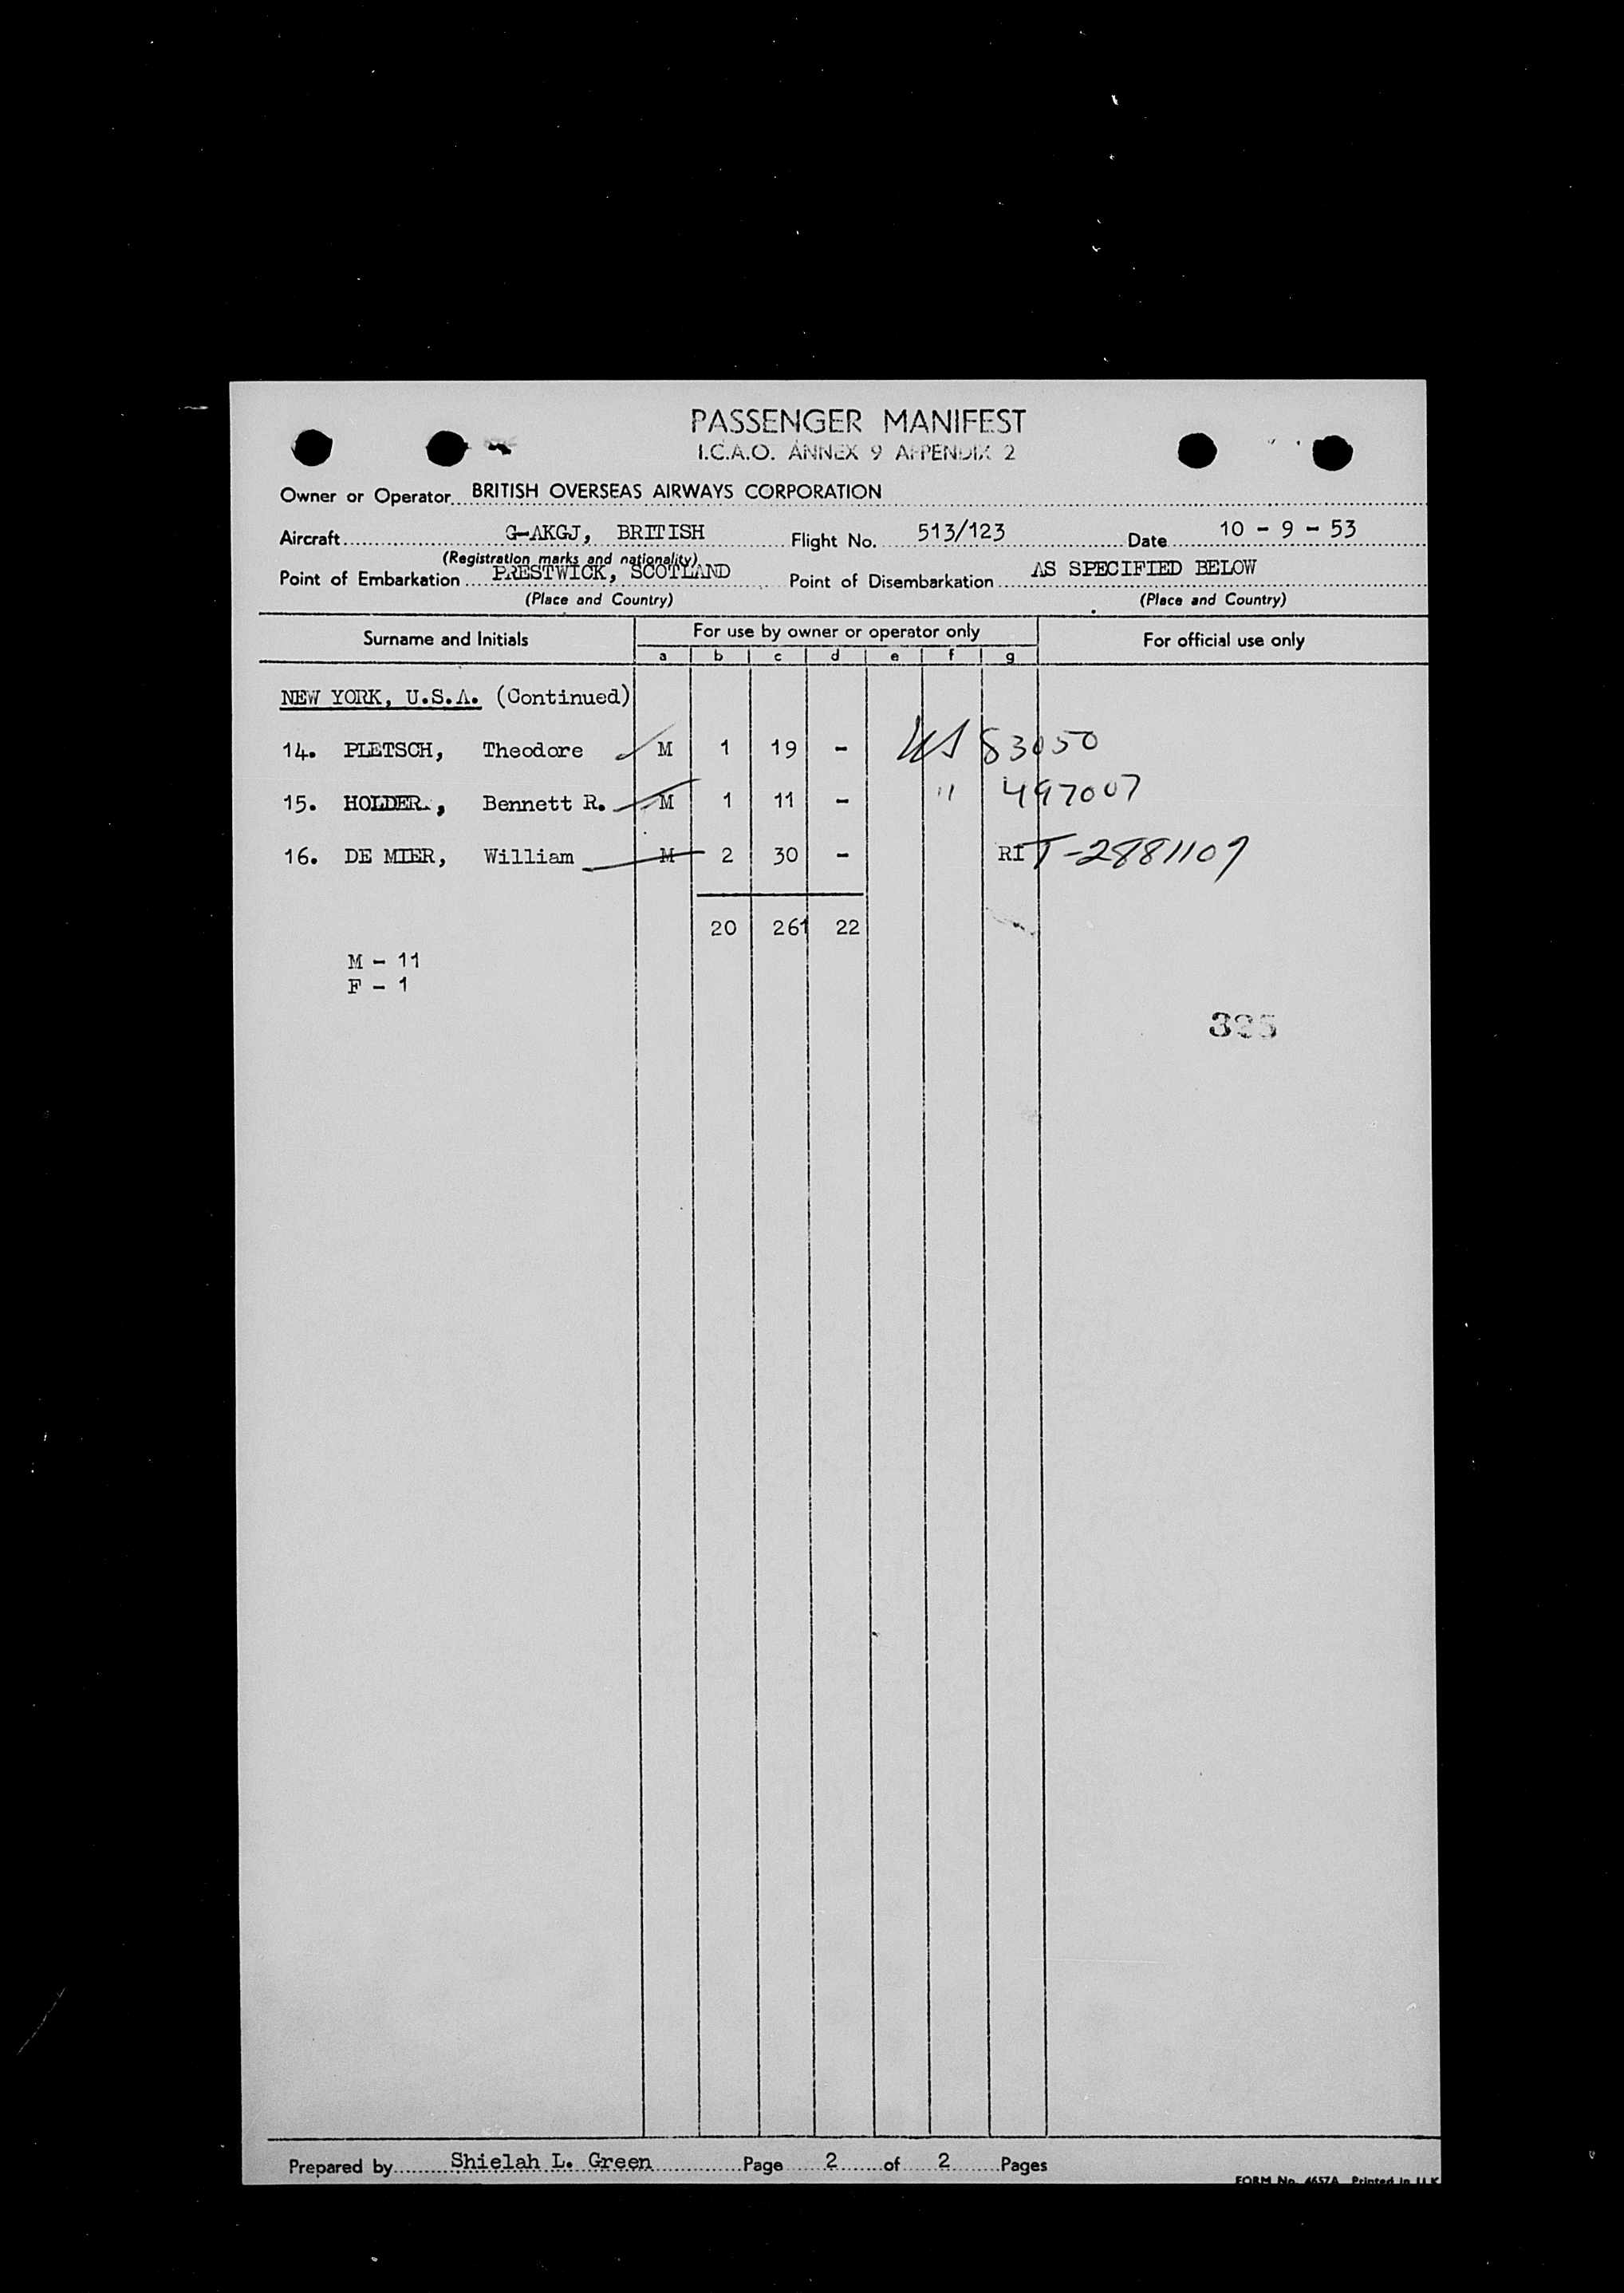 PASSENGER MANIFEST
I.C.A.O. ANNEX 9 APPENDIX 2
Owner or Operator BRITISH OVERSEAS AIRWAYS CORPORATION
Aircraft G-AKGJ, BRITISH Flight No. 513/123 Date 10 - 9 - 53
(Registration marks and nationality)
Point of Embarkation PRESTWICK, SCOTLAND Point of Disembarkation AS SPECIFIED BELOW
(Place and Country) (Place and Country)
Surname and Initials For use by owner or operator only For official use only
a b c d e f g
NEW YORK, U.S.A. (Continued)
14. PLETSCH, Theodore M 1 19 - US 83050
15. HOLDER, Bennett R. M 1 11 - " 497007
16. DE MIER, William M 2 30 - RI T-2881109
20 261 22
M - 11
F - 1
Prepared by Shielah L. Green Page 2 of 2 Pages
FORM No. 4657A Printed in U.K